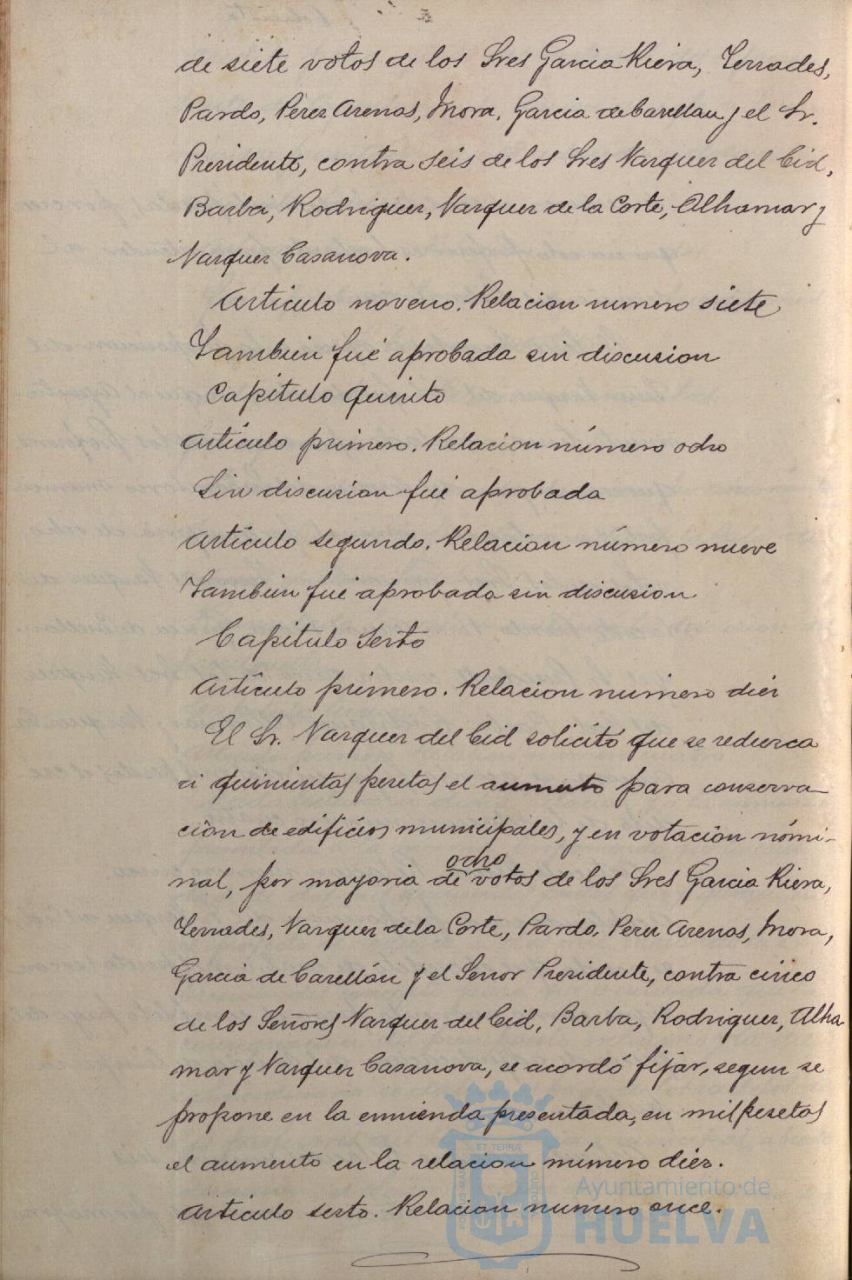 de siete votos de los Sres Garcia Riera, Terrades,
Pardo, Perez Arenas, Mora, Garcia de Carellan y el Sr.
Presidente, contra seis de los Sres Vazquez del Cid,
Barba, Rodriguez, Vazquez de la Corte, Alhamar y
Vazquez Casanova.
Artículo noveno. Relacion numero siete
Tambien fué aprobada sin discusion
Capítulo Quinto
Artículo primero. Relacion número ocho
Sin discusion fué aprobada
Artículo segundo. Relacion número nueve
Tambien fué aprobada sin discusion
Capítulo Sexto
Artículo primero. Relacion numero diez
El Sr. Vazquez del Cid solicitó que se reduzca
á quinientas pesetas el aumento para conserva
cion de edificios municipales, y en votacion nómi-
nal, por mayoria de ocho votos de los Sres Garcia Riera,
Terrades, Vazquez de la Corte, Pardo, Perez Arenas, Mora,
Garcia de Carellán y el Señor Presidente, contra cinco
de los Señores Vazquez del Cid, Barba, Rodriguez, Alha
mar y Vazquez Casanova, se acordó fijar, segun se
propone en la enmienda presentada, en mil pesetas
el aumento en la relacion número diez.
Artículo sexto. Relacion numero once.
ET TERRÆ
Ayuntamiento de
HUELVA